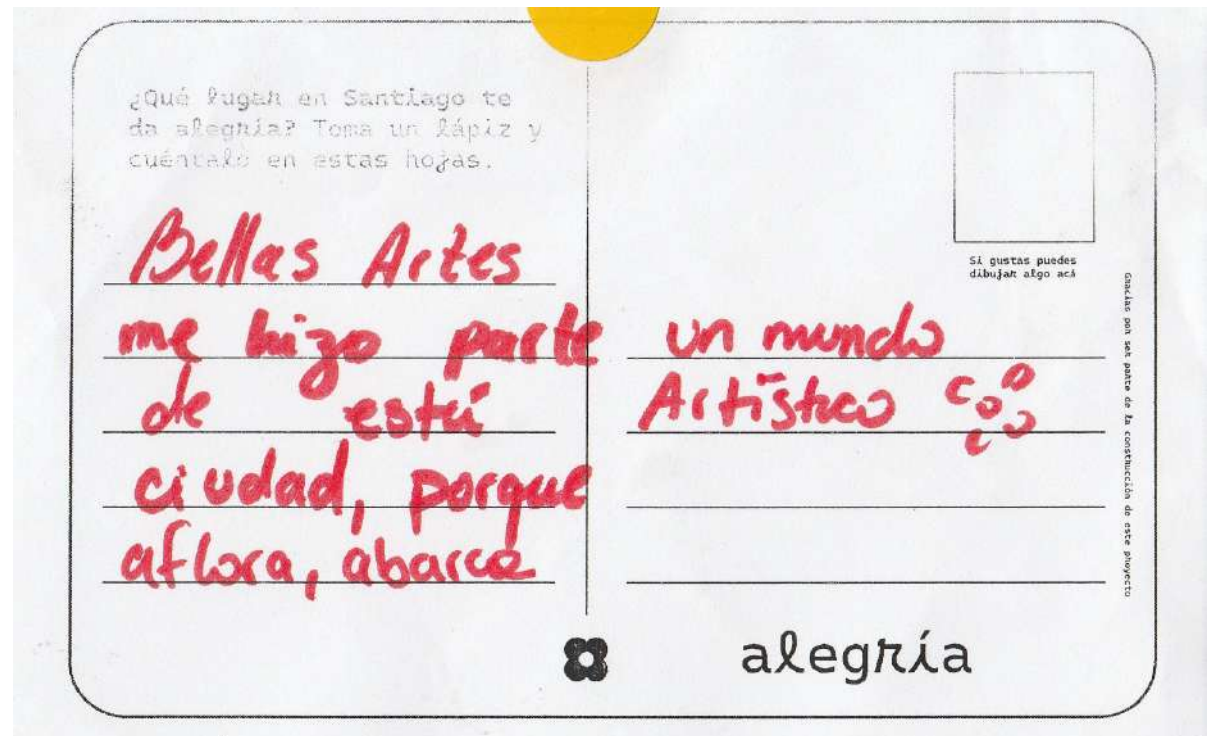 ¿Qué lugar en Santiago te
da alegría? Toma un lápiz y
cuéntalo en estas hojas.
Bellas Artes
me hizo parte
de está
ciudad, porque
aflora, abarca
Si gustas puedes
dibujar algo acá
un mundo
Artístico
Gracias por ser parte de la construcción de este proyecto
alegría